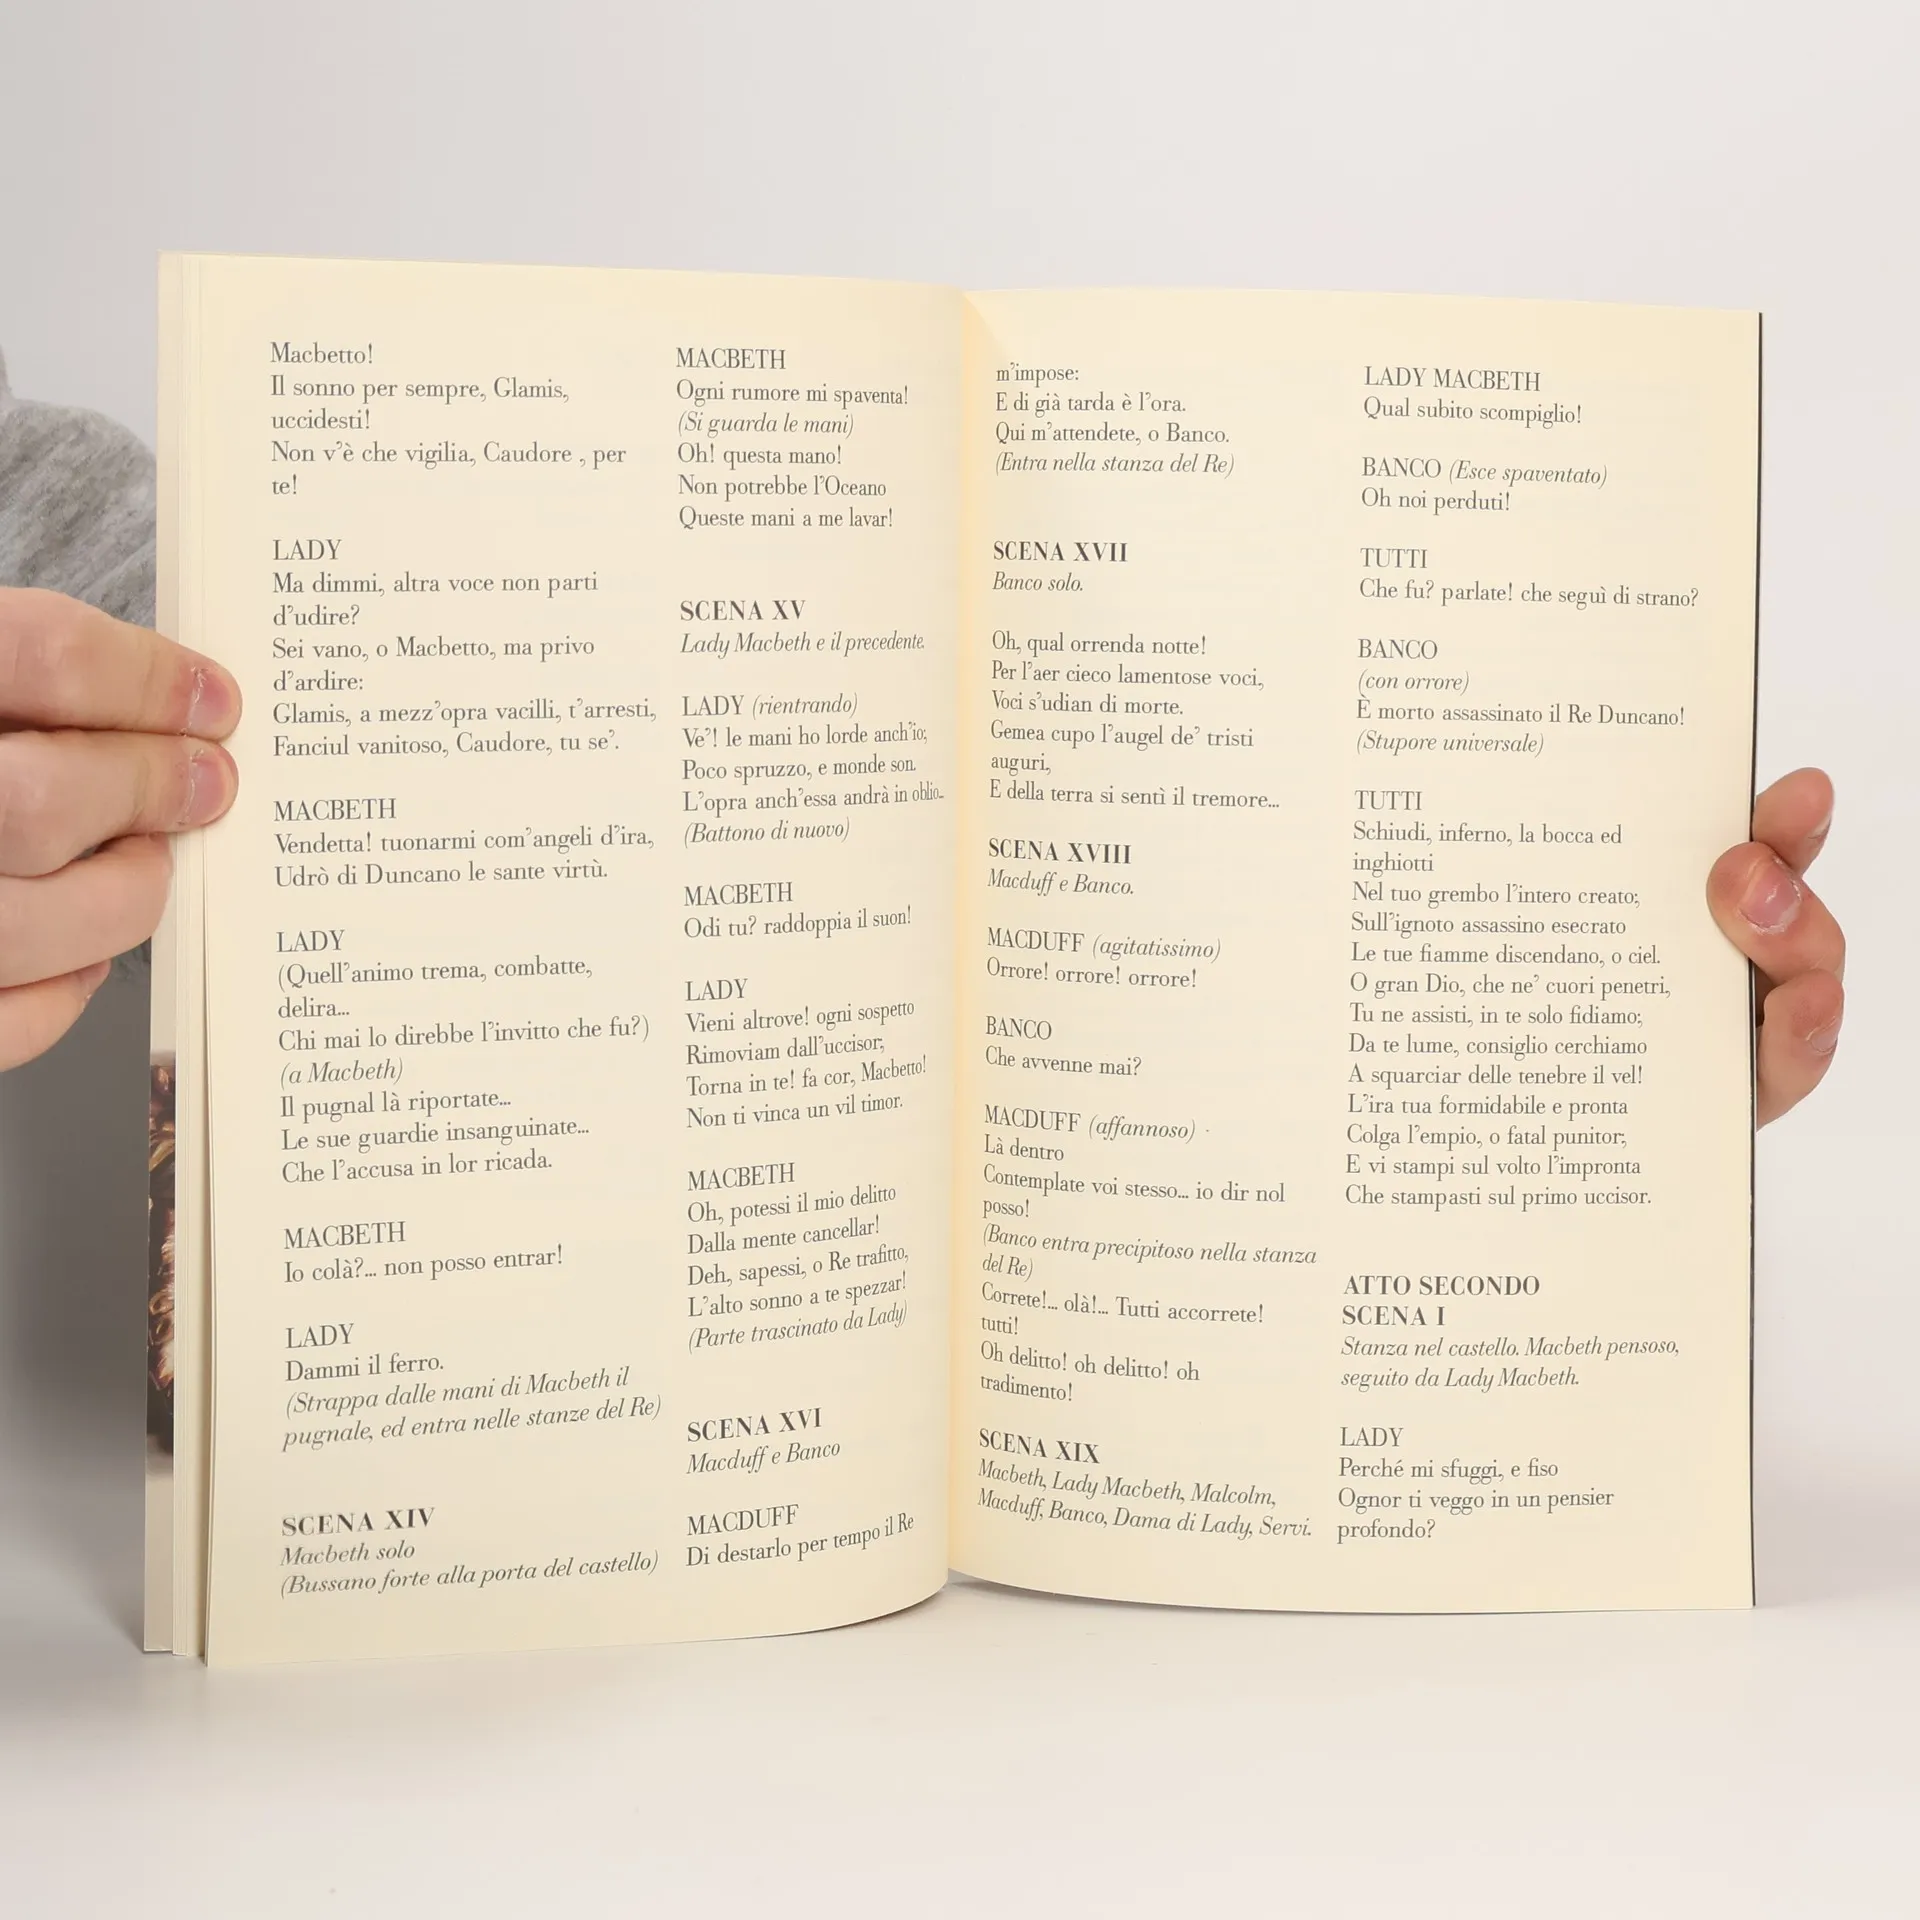 Macbetto!
Il sonno per sempre, Glamis,
uccidesti!
Non v'è che vigilia, Caudore , per
te!
LADY
Ma dimmi, altra voce non parti
d'udire?
Sei vano, o Macbetto, ma privo
d'ardire:
Glamis, a mezz'opra vacilli, t'arresti,
Fanciul vanitoso, Caudore, tu se'.
MACBETH
Vendetta! tuonarmi com'angeli d'ira,
Udrò di Duncano le sante virtù.
LADY
(Quell'animo trema, combatte,
delira...
Chi mai lo direbbe l'invitto che fu?)
(a Macbeth)
Il pugnal là riportate...
Le sue guardie insanguinate...
Che l'accusa in lor ricada.
MACBETH
Io colà?... non posso entrar!
LADY
Dammi il ferro.
(Strappa dalle mani di Macbeth il
pugnale, ed entra nelle stanze del Re)
SCENA XIV
Macbeth solo
(Bussano forte alla porta del castello)
MACBETH
Ogni rumore mi spaventa!
(Si guarda le mani)
Oh! questa mano!
Non potrebbe l'Oceano
Queste mani a me lavar!
SCENA XV
Lady Macbeth e il precedente.
LADY (rientrando)
Ve'! le mani ho lorde anch'io;
Poco spruzzo, e monde son.
L'opra anch'essa andrà in oblio...
(Battono di nuovo)
MACBETH
Odi tu? raddoppia il suon!
LADY
Vieni altrove! ogni sospetto
Rimoviam dall'uccisor;
Torna in te! fa cor, Macbetto!
Non ti vinca un vil timor.
MACBETH
Oh, potessi il mio delitto
Dalla mente cancellar!
Deh, sapessi, o Re trafitto,
L'alto sonno a te spezzar!
(Parte trascinato da Lady)
SCENA XVI
Macduff e Banco
MACDUFF
Di destarlo per tempo il Re
m'impose:
E di già tarda è l'ora.
Qui m'attendete, o Banco.
(Entra nella stanza del Re)
SCENA XVII
Banco solo.
Oh, qual orrenda notte!
Per l'aer cieco lamentose voci,
Voci s'udian di morte.
Gemea cupo l'augel de' tristi
auguri,
E della terra si sentì il tremore...
SCENA XVIII
Macduff e Banco.
MACDUFF (agitatissimo)
Orrore! orrore! orrore!
BANCO
Che avvenne mai?
MACDUFF (affannoso) -
Là dentro
Contemplate voi stesso... io dir nol
posso!
(Banco entra precipitoso nella stanza
del Re)
Correte!... olà!... Tutti accorrete!
tutti!
Oh delitto! oh delitto! oh
tradimento!
SCENA XIX
Macbeth, Lady Macbeth, Malcolm,
Macduff, Banco, Dama di Lady, Servi.
LADY MACBETH
Qual subito scompiglio!
BANCO (Esce spaventato)
Oh noi perduti!
TUTTI
Che fu? parlate! che seguì di strano?
BANCO
(con orrore)
È morto assassinato il Re Duncano!
(Stupore universale)
TUTTI
Schiudi, inferno, la bocca ed
inghiotti
Nel tuo grembo l'intero creato;
Sull'ignoto assassino esecrato
Le tue fiamme discendano, o ciel.
O gran Dio, che ne' cuori penetri,
Tu ne assisti, in te solo fidiamo;
Da te lume, consiglio cerchiamo
A squarciar delle tenebre il vel!
L'ira tua formidabile e pronta
Colga l'empio, o fatal punitor;
E vi stampi sul volto l'impronta
Che stampasti sul primo uccisor.
ATTO SECONDO
SCENA I
Stanza nel castello. Macbeth pensoso,
seguito da Lady Macbeth.
LADY
Perché mi sfuggi, e fiso
Ognor ti veggo in un pensier
profondo?